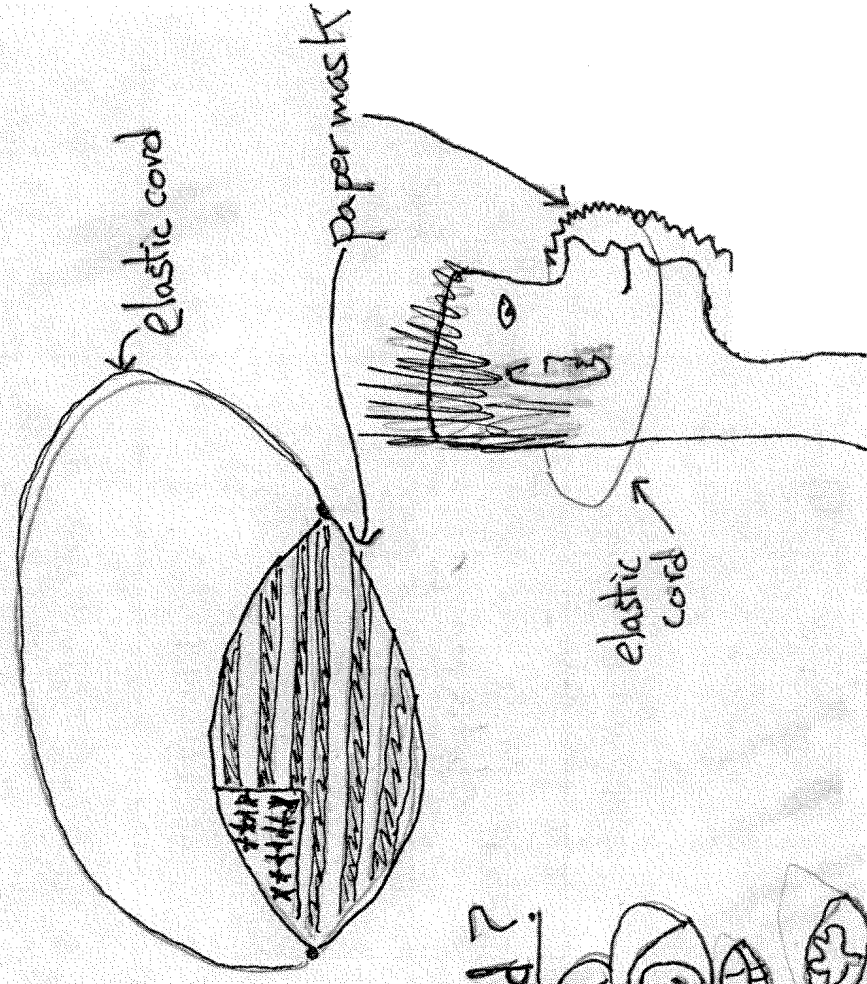 elastic cord
paper mask
elastic
cord
d?